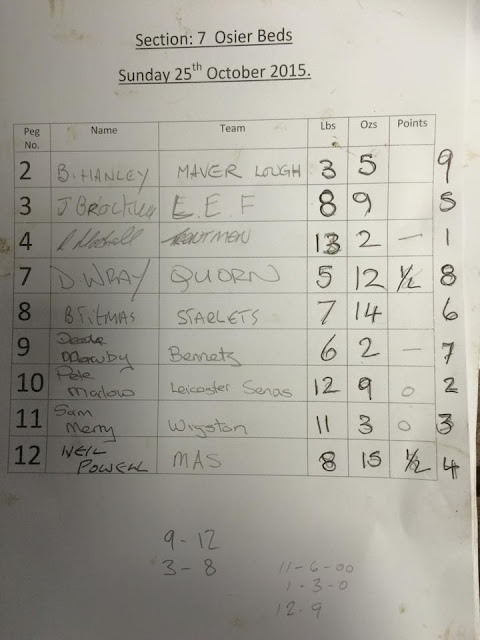 Section: 7 Osier Beds
Sunday 25th October 2015.
Peg No. Name Team Lbs Ozs Points
2 B. HANLEY MAVER LOUGH 3 5 9
3 J Brockley E.E.F 8 9 5
4 TROUTMEN 13 2 — 1
7 D. WRAY QUORN 5 12 1/2 8
8 B TITMAS STARLETS 7 14 6
9 Mawby Bennets 6 2 — 7
10 Pete Marlow Leicester Senas 12 9 0 2
11 Sam Merry Wigston 11 3 0 3
12 NEIL POWELL MAS 8 15 1/2 4
9 - 12
3 - 8
11 - 6 - 00
1 - 3 - 0
12. 9